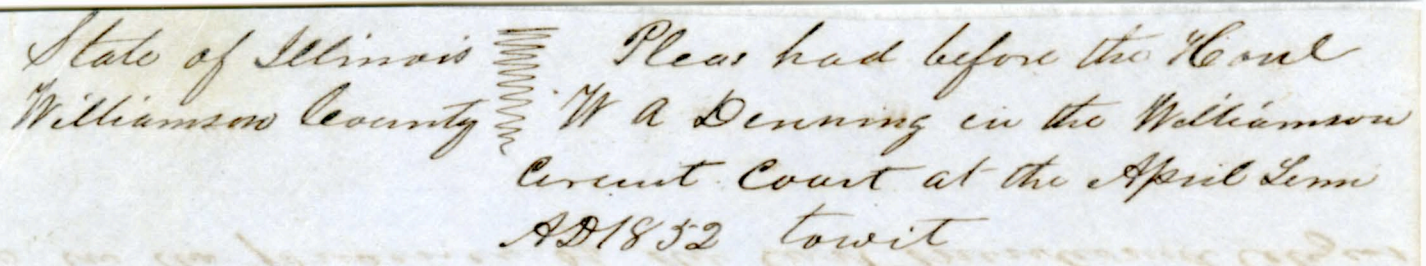 State of Illinois
Williamson County
Pleas had before the Honl
W A Denning in the Williamson
Circuit Court at the April Term
AD 1852 towit